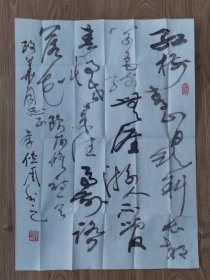 红树青山日欲斜长郊
草色绿无涯游人不管
春将老来往亭前踏
落花 欧阳修诗
同志正